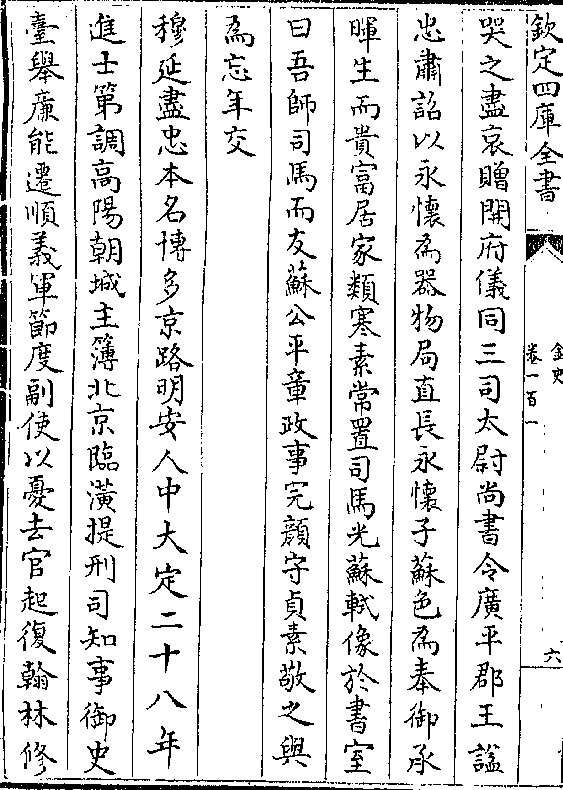 欽定四庫全書
金史
卷一百一
六
哭之盡哀贈開府儀同三司太尉尚書令廣平郡王諡
忠肅詔以永懷為器物局直長永懷子蘇色為奉御承
暉生而貴富居家類寒素常置司馬光蘇軾像於書室
曰吾師司馬而友蘇公平章政事完顔守貞素敬之與
為忘年交
穆延盡忠本名博多京路明安人中大定二十八年
進士第調高陽朝城主簿北京臨潢提刑司知事御史
臺舉㢘能遷順義軍節度副使以憂去官起復翰林修